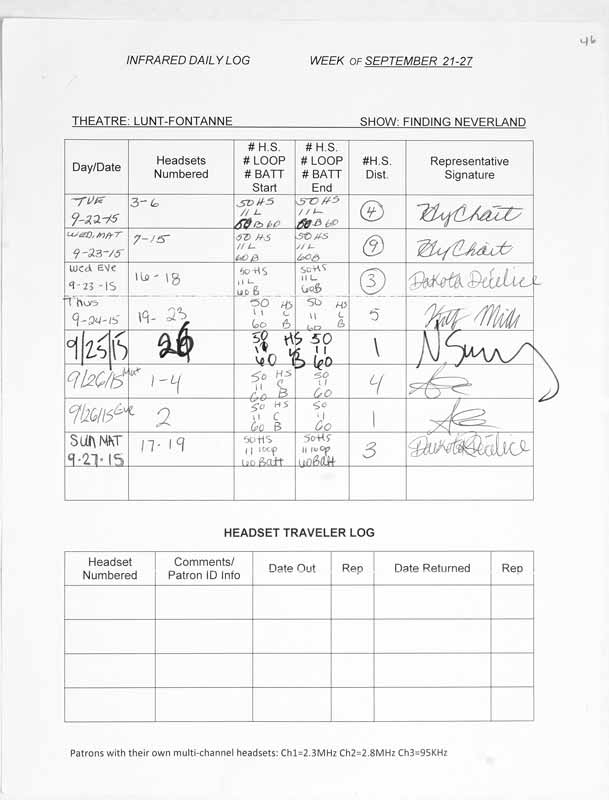 46
INFRARED DAILY LOG WEEK OF SEPTEMBER 21-27
THEATRE: LUNT-FONTANNE SHOW: FINDING NEVERLAND
Day/Date
Headsets
Numbered
# H.S.
# LOOP
# BATT
Start
# H.S.
# LOOP
# BATT
End
#H.S.
Dist.
Representative
Signature
TUE
9-22-15
3-6
50 HS
11 L
60
50 HS
11 L
B 60
4
Ely Chait
WED, MAT
9-23-15
7-15
50 HS
11 L
60B
50 HS
11 L
60B
9
Ely Chait
Wed Eve
9-23-15
16-18
50HS
11L
60B
50HS
11L
60B
3
Dakota
Thus
9-24-15
19-23
50 HS
11 L
60 B
50 HS
11 L
60 B
5
9/25/15
26
50 HS
11
60 B
50
11
60
1
9/26/15 Mat
1-4
50 HS
11 C
60 B
50
11
60
4
9/26/15 Eve
2
50 HS
11 C
60 B
50
11
60
1
SUN MAT
9-27-15
17-19
50HS
11 loop
60Batt
50HS
11 loop
60Batt
3
Dakota
HEADSET TRAVELER LOG
Headset
Numbered
Comments/
Patron ID Info
Date Out
Rep
Date Returned
Rep
Patrons with their own multi-channel headsets: Ch1=2.3MHz Ch2=2.8MHz Ch3=95KHz